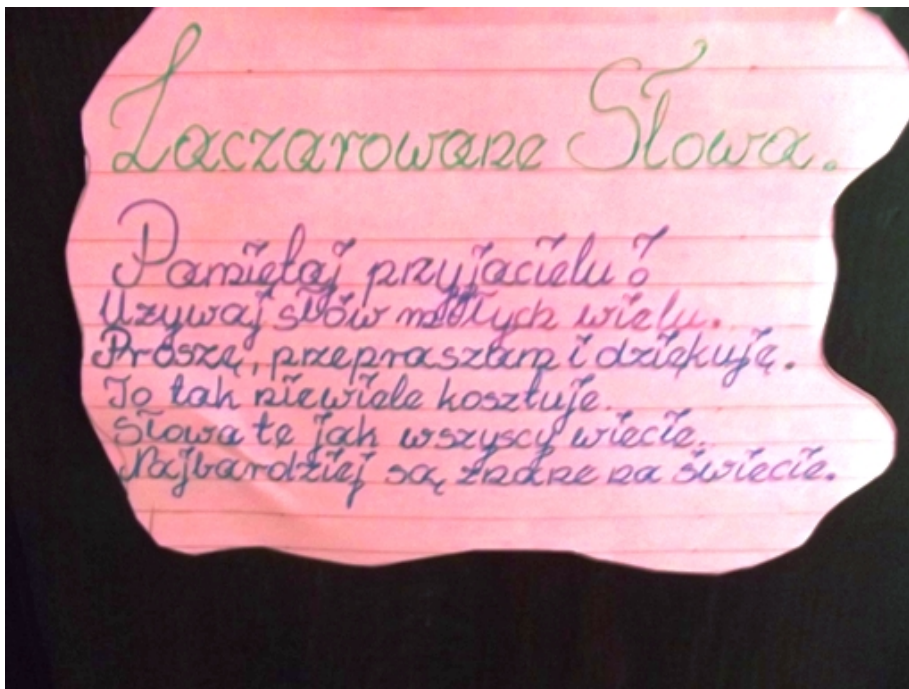 Zaczarowane Słowa.
Pamiętaj przyjacielu!
Używaj słów miłych wielu.
Proszę, przepraszam i dziękuję.
To tak niewiele kosztuje.
Słowa te jak wszyscy wiecie.
Najbardziej są znane na świecie.